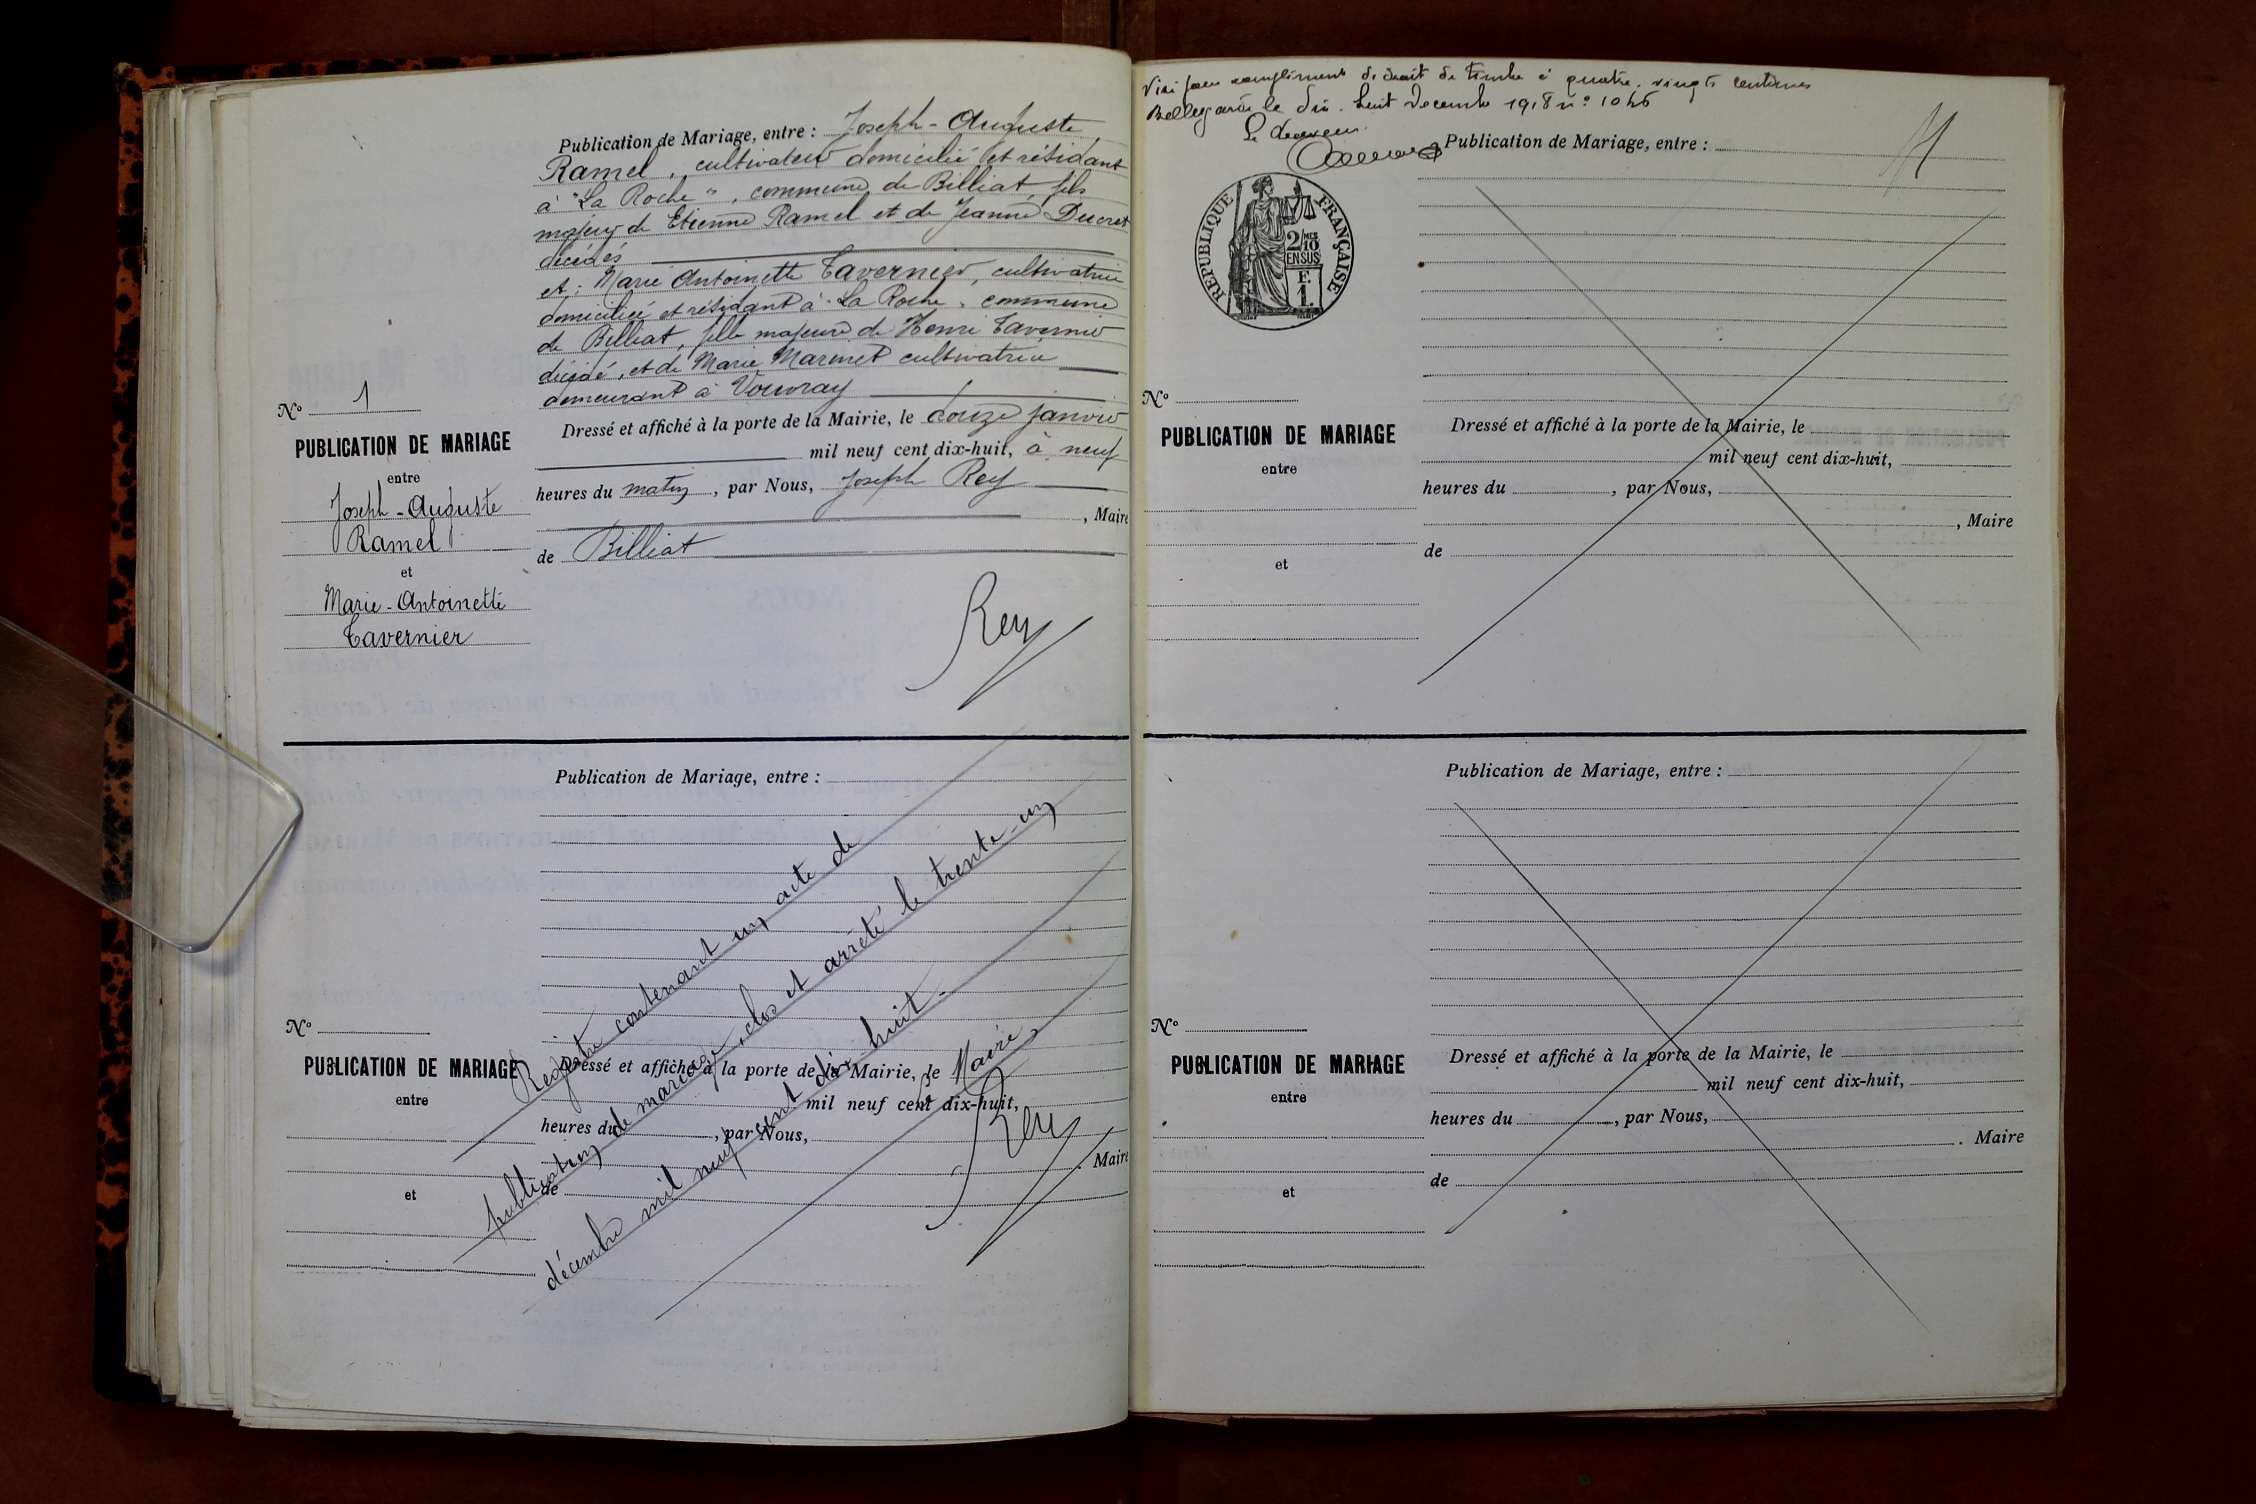 Publication de Mariage, entre : Joseph-Auguste
Ramel, cultivateur domicilié et résidant
à "La Roche", commune de Billiat, fils
majeur de Etienne Ramel et de Jeanne Ducret
décédés
et : Marie Antoinette Tavernier, cultivatrice
domiciliée et résidant à "La Roche, commune
de Billiat, fille majeure de Henri Tavernier
décédé, et de Marie Marinet cultivatrice
demeurant à Vouvray
Dressé et affiché à la porte de la Mairie, le douze janvier
mil neuf cent dix-huit, à neuf
heures du matin, par Nous, Joseph Rey
, Maire
de Billiat
Rey
N° 1
PUBLICATION DE MARIAGE
entre
Joseph-Auguste
Ramel
et
Marie-Antoinette
Tavernier
Publication de Mariage, entre :
N°
PUBLICATION DE MARIAGE
entre
et
Dressé et affiché à la porte de la Mairie, le
mil neuf cent dix-huit,
heures du , par Nous,
. Maire
de
Registre contenant un acte de
publication de mariage, clos et arrêté le trente-un
décembre mil neuf cent dix huit.
Le Maire,
Rey
Visé pour complément de droit de timbre à quatre-vingts centimes
Bellegarde le dix-huit Decembre 1918 n°
Le Receveur
RÉPUBLIQUE FRANÇAISE
2/10 MES
EN SUS
F.
1.
Publication de Mariage, entre :
N°
PUBLICATION DE MARIAGE
entre
et
Dressé et affiché à la porte de la Mairie, le
mil neuf cent dix-huit,
heures du , par Nous,
, Maire
de
Publication de Mariage, entre :
N°
PUBLICATION DE MARIAGE
entre
et
Dressé et affiché à la porte de la Mairie, le
mil neuf cent dix-huit,
heures du , par Nous,
. Maire
de